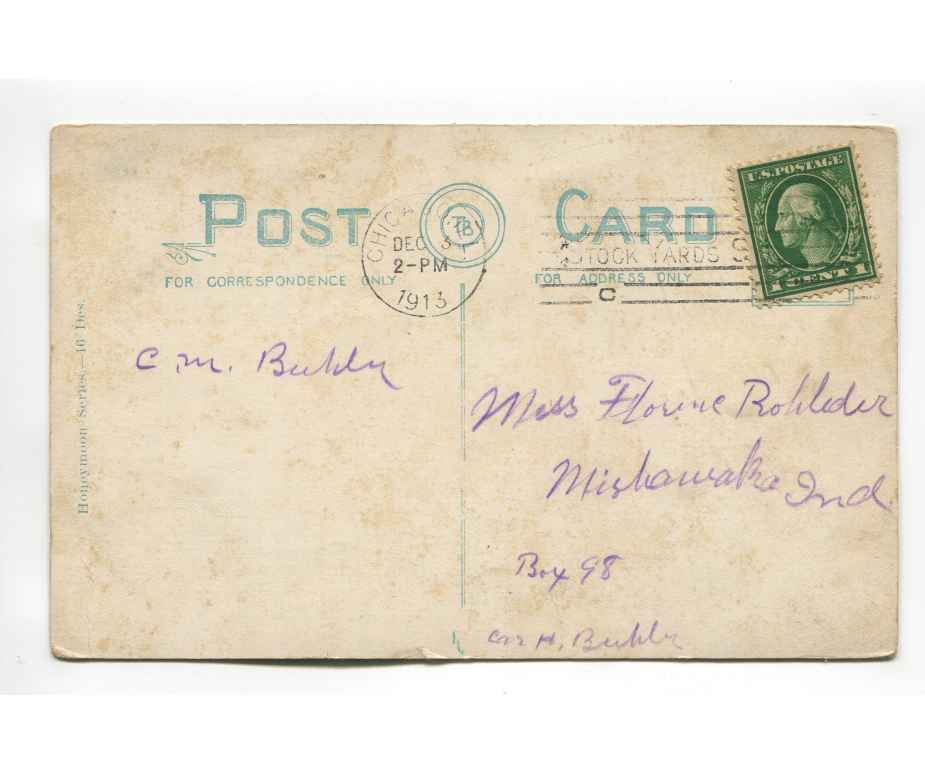 POST CARD
FOR CORRESPONDENCE ONLY
FOR ADDRESS ONLY
TB
CHICA
DEC 3
2-PM
1913
STOCK YARDS S
C
U.S. POSTAGE
1 CENT 1
Honeymoon Series.—16 Des.
C. M. Buhler
Miss Florine Rohleder
Mishawaka Ind.
Box 98
Car H. Buhler